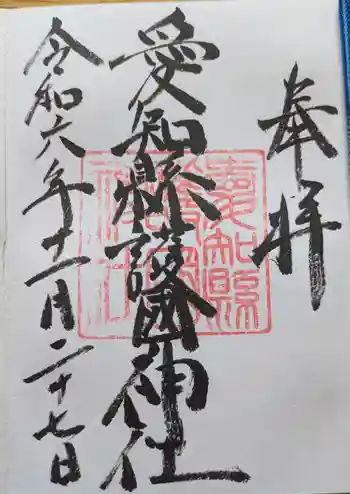 奉拝
愛知縣護國神社
令和六年十一月二十七日
愛知縣護國神社